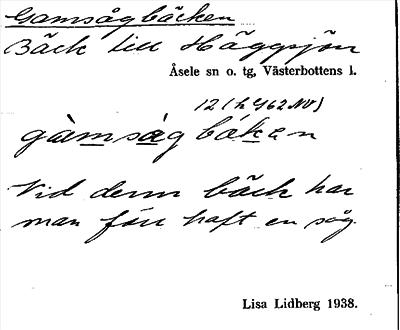 Gamsågbäcken
Bäck till Häggsjön
Åsele sn o. tg, Västerbottens l.
gàmság bákan
Vid denna bäck har
man förr haft en såg.
Lisa Lidberg 1938.